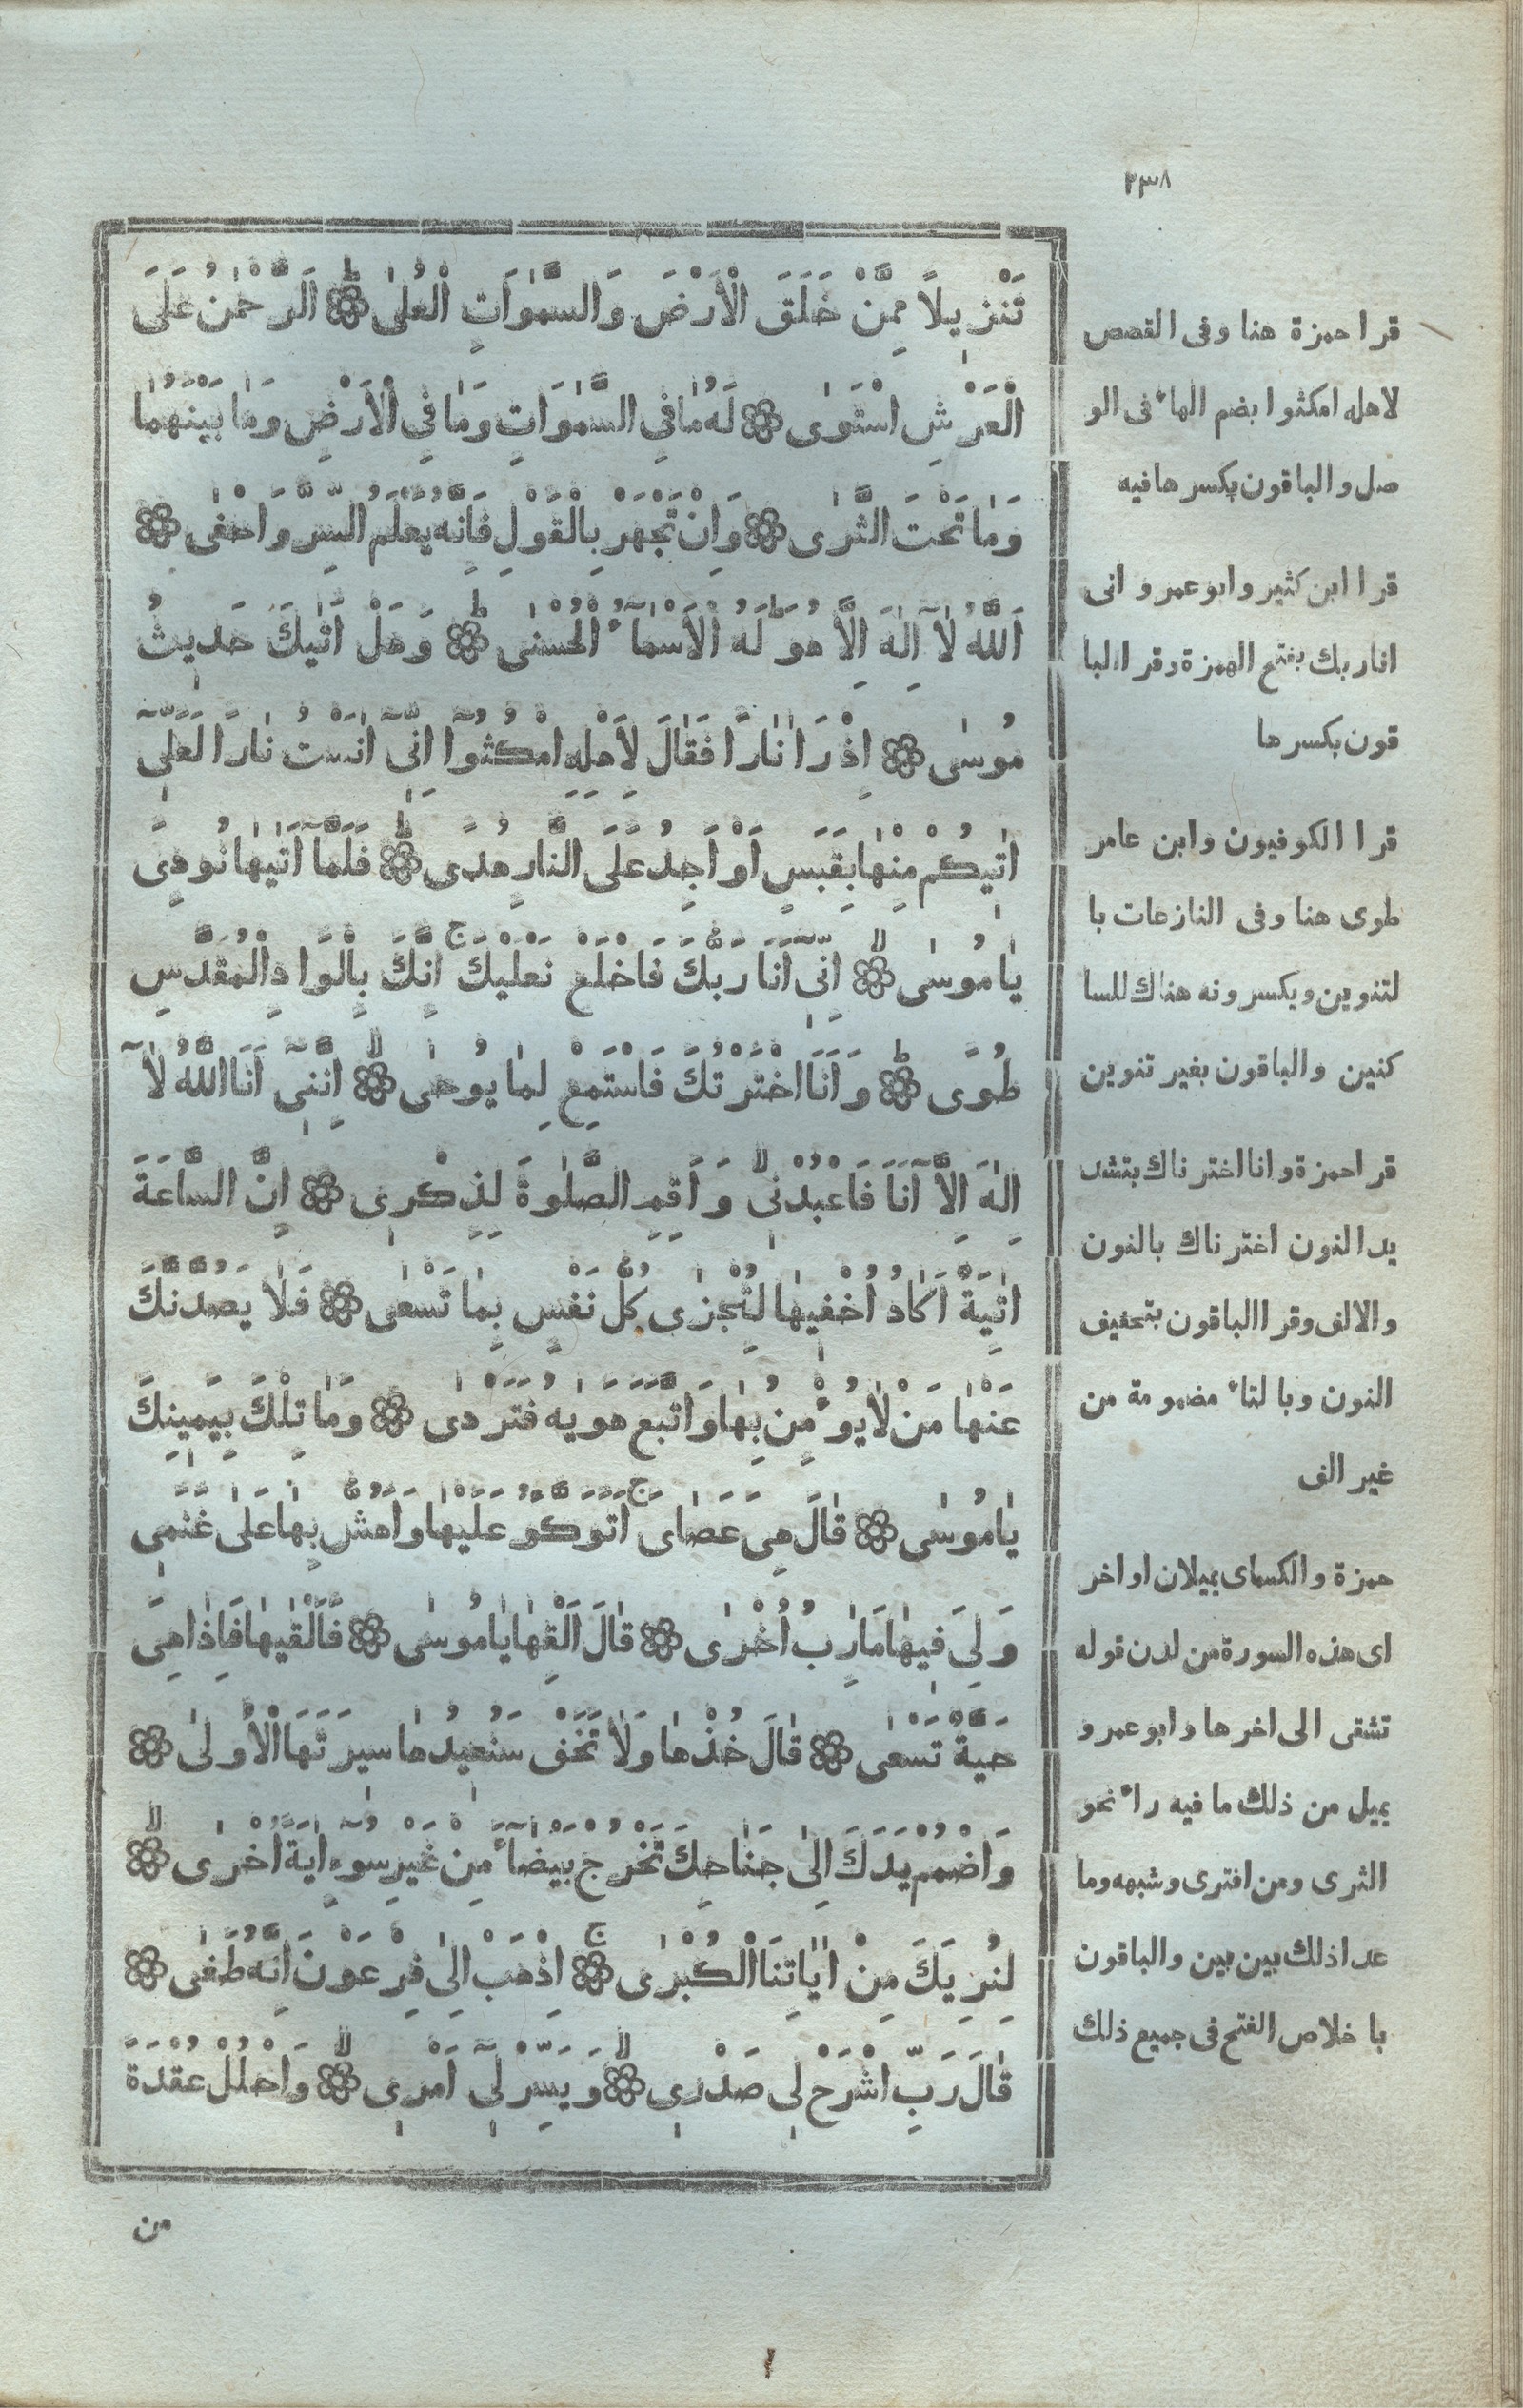 ٣٣٨
تَنْزِيلًا مِمَّنْ خَلَقَ الْاَرْضَ وَالسَّمٰوَاتِ الْعُلٰى ۝ اَلرَّحْمٰنُ عَلَى
الْعَرْشِ اسْتَوٰى ۝ لَهُ مٰا فِي السَّمٰوَاتِ وَمٰا فِي الْاَرْضِ وَمٰا بَيْنَهُمٰا
وَمٰا تَحْتَ الثَّرٰى ۝ وَاِنْ تَجْهَرْ بِالْقَوْلِ فَاِنَّهُ يَعْلَمُ السِّرَّ وَاَخْفٰى ۝
اَللّٰهُ لٰآ اِلٰهَ اِلَّا هُوَ ط لَهُ الْاَسْمٰآءُ الْحُسْنٰى ۝ وَهَلْ اَتٰيكَ حَدِيثُ
مُوسٰى ۝ اِذْ رَاٰ نٰارًا فَقٰالَ لِاَهْلِهِ امْكُثُوٓا اِنِّىٓ اٰنَسْتُ نٰارًا لَعَلِّىٓ
اٰتِيكُمْ مِنْهٰا بِقَبَسٍ اَوْ اَجِدُ عَلَى النَّارِ هُدًى ۝ فَلَمَّآ اَتٰيهٰا نُودِىَ
يٰا مُوسٰى ۝ اِنِّىٓ اَنَا رَبُّكَ فَاخْلَعْ نَعْلَيْكَ ج اِنَّكَ بِالْوَادِ الْمُقَدَّسِ
طُوًى ۝ وَاَنَا اخْتَرْتُكَ فَاسْتَمِعْ لِمٰا يُوحٰى ۝ اِنَّنِىٓ اَنَا اللّٰهُ لٰآ
اِلٰهَ اِلَّآ اَنَا فَاعْبُدْنِى لا وَاَقِمِ الصَّلٰوةَ لِذِكْرِى ۝ اِنَّ السَّاعَةَ
اٰتِيَةٌ اَكٰادُ اُخْفِيهٰا لِتُجْزٰى كُلُّ نَفْسٍ بِمٰا تَسْعٰى ۝ فَلٰا يَصُدَّنَّكَ
عَنْهٰا مَنْ لٰا يُؤْمِنُ بِهٰا وَاتَّبَعَ هَوٰيهُ فَتَرْدٰى ۝ وَمٰا تِلْكَ بِيَمِينِكَ
يٰا مُوسٰى ۝ قٰالَ هِىَ عَصٰاىَ ج اَتَوَكَّؤُ عَلَيْهٰا وَاَهُشُّ بِهٰا عَلٰى غَنَمِى
وَلِىَ فِيهٰا مَاٰرِبُ اُخْرٰى ۝ قٰالَ اَلْقِهٰا يٰا مُوسٰى ۝ فَاَلْقٰيهٰا فَاِذٰا هِىَ
حَيَّةٌ تَسْعٰى ۝ قٰالَ خُذْهٰا وَلٰا تَخَفْ سَنُعِيدُهٰا سِيرَتَهَا الْاُولٰى ۝
وَاضْمُمْ يَدَكَ اِلٰى جَنٰاحِكَ تَخْرُجْ بَيْضٰآءَ مِنْ غَيْرِ سُوٓءٍ اٰيَةً اُخْرٰى ۝
لِنُرِيَكَ مِنْ اٰيٰاتِنَا الْكُبْرٰى ۝ اِذْهَبْ اِلٰى فِرْعَوْنَ اِنَّهُ طَغٰى ۝
قٰالَ رَبِّ اشْرَحْ لِى صَدْرِى ۝ وَيَسِّرْ لِىٓ اَمْرِى ۝ وَاحْلُلْ عُقْدَةً
من
قرا حمزة هنا وفى القصص
لاهله امكثوا بضم الهاء فى الو
صل والباقون بكسرها فيه
قرا ابن كثير وابو عمرو انى
انا ربك بفتح الهمزة وقرا البا
قون بكسرها
قرا الكوفيون وابن عامر
طوى هنا وفى النازعات با
لتنوين ويكسرونه هناك للسا
كنين والباقون بغير تنوين
قرا حمزة وانا اخترناك بتشد
يد النون اخترناك بالنون
والالف وقرا الباقون بتخفيف
النون وبالتاء مضمومة من
غير الف
حمزة والكساى يميلان اواخر
اى هذه السورة من لدن قوله
تشقى الى اخرها وابو عمرو
يميل من ذلك ما فيه راء نحو
الثرى ومن افترى وشبهه وما
عدا ذلك بين بين والباقون
با خلاص الفتح فى جميع ذلك